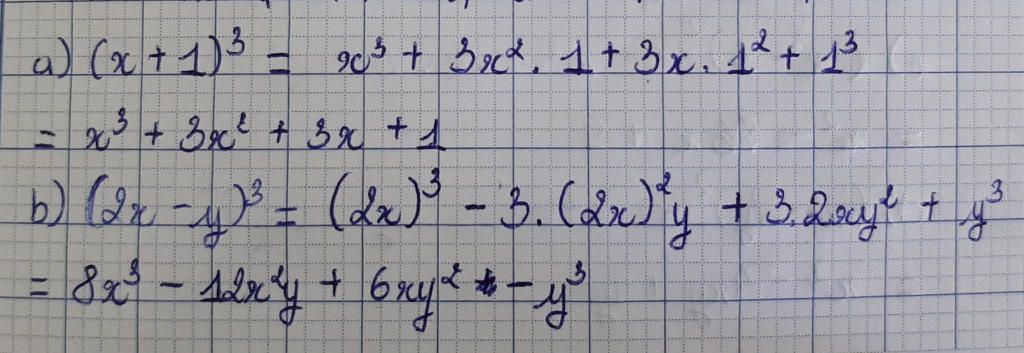 a) (x + 1)³ = x³ + 3x². 1 + 3x. 1² + 1³
= x³ + 3x² + 3x + 1
b) (2x - y)³ = (2x)³ - 3. (2x)²y + 3.2xy² + y³
= 8x³ - 12x²y + 6xy² - y³